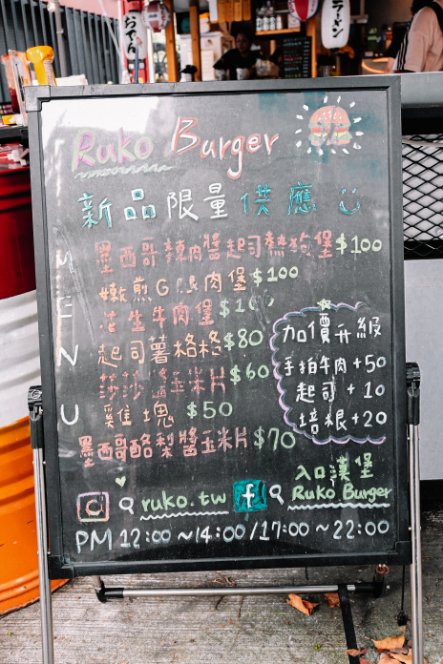 おでん
ラーメン
Ruko Burger
新品限量供應
MENU
墨西哥辣肉醬起司熱狗堡$100
嫩煎 肉堡$100
花生牛肉堡
起司薯格格$80
莎莎醬玉米片$60
雞塊 $50
墨西哥酪梨醬玉米片$70
加價升級
手拍牛肉+50
起司+10
培根+20
ruko.tw
f
入口漢堡
Ruko Burger
PM 12:00~14:00/17:00~22:00